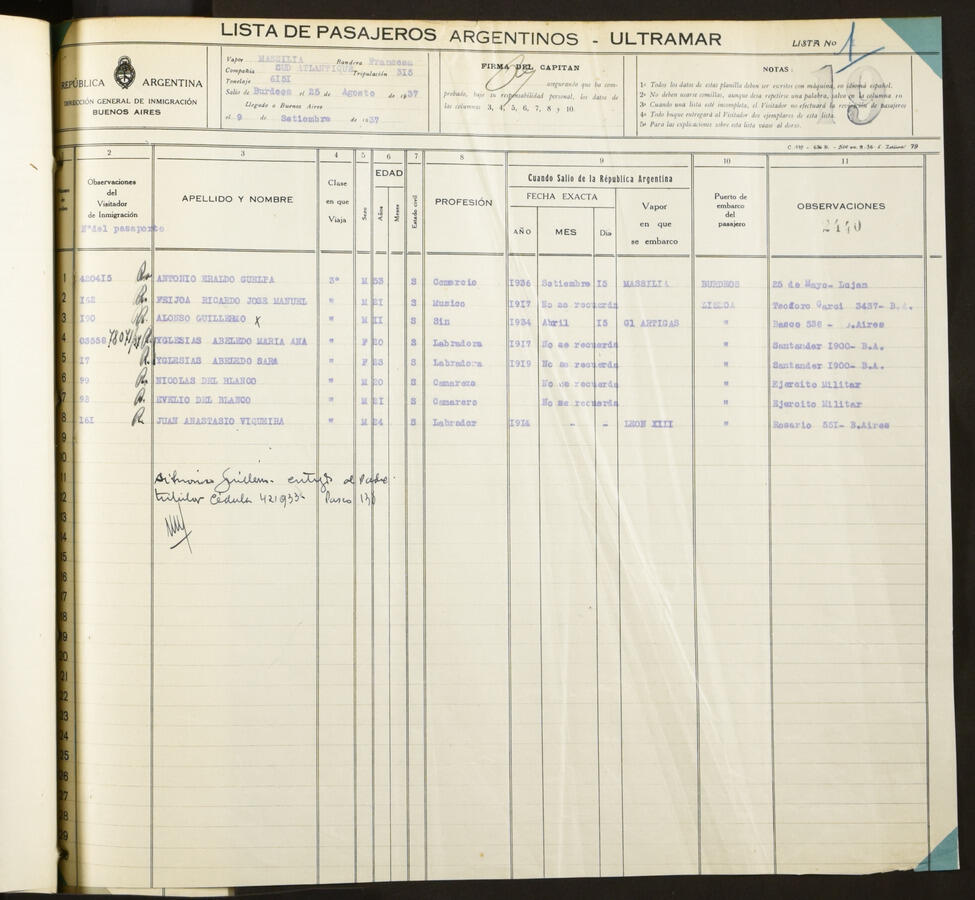 LISTA DE PASAJEROS ARGENTINOS - ULTRAMAR
LISTA No 1
REPÚBLICA ARGENTINA
DIRECCIÓN GENERAL DE INMIGRACIÓN
BUENOS AIRES
Vapor MASSILIA Bandera Francesa
Compañia SUD ATLANTIQUE Tripulación 313
Tonelaje 6151
Salio de Burdeos el 25 de Agosto de 1937
Llegado a Buenos Aires
el 9 de Setiembre de 1937
FIRMA DEL CAPITAN
asegurando que ha com-
probado, bajo su responsabilidad personal, los datos de
las columnas 3, 4, 5, 6, 7, 8 y 10.
NOTAS:
1ª Todos los datos de estas planillas deben ser escritos con máquina, en idioma español.
2ª No deben usarse comillas, aunque deba repetirse una palabra, salvo en la columna
3ª Cuando una lista esté incompleta, el Visitador no efectuará la de pasajeros
4ª Todo buque entregará al Visitador dos ejemplares de esta lista.
5ª Para las explicaciones sobre esta lista vease al dorso.
19
2 3 4 5 6 7 8 9 10 11
Observaciones del Visitador de Inmigración
Nº del pasaporte
APELLIDO Y NOMBRE
Clase en que Viaja
Sexo
EDAD
Años
Meses
Estado civil
PROFESIÓN
Cuando Salio de la República Argentina
FECHA EXACTA
AÑO MES Dia
Vapor en que se embarco
Puerto de embarco del pasajero
OBSERVACIONES
2440
1 420415 ANTONIO ERALDO GUELPA 3ª M 53 S Comercio 1936 Setiembre 15 MASSILIA BURDEOS 25 de Mayo- Lujan
2 142 FEIJOA RICARDO JOSE MANUEL " M 21 S Musico 1917 No se recuerda LISBOA Teodoro Garci 3437- B.A.
3 190 ALONSO GUILLERMO x " M 11 S Sin 1934 Abril 15 Gl ARTIGAS " Basco 536 - B.Aires
4 03558 YGLESIAS ABELEDO MARIA ANA " F 20 S Labradora 1917 No se recuerda " Santander 1900- B.A.
5 17 YGLESIAS ABELEDO SARA " F 23 S Labradora 1919 No se recuerda " Santander 1900- B.A.
6 99 NICOLAS DEL BLANCO " M 20 S Camarero No se recuerda " Ejercito Militar
7 98 EVELIO DEL BLANCO " M 21 S Camarero No se recuerda " Ejercito Militar
8 161 JUAN ANASTASIO VIQUEIRA " M 24 S Labrador 1914 - - LEON XIII " Rosario 551- B.Aires
9
10
11 entrego al Padre
12 Cédula 421933
13
14
15
16
17
18
19
20
21
22
23
24
25
26
27
28
29